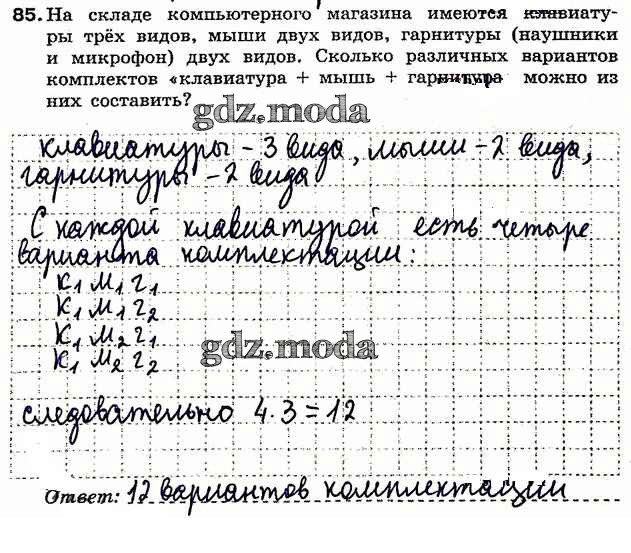 85. На складе компьютерного магазина имеются клавиату-
ры трёх видов, мыши двух видов, гарнитуры (наушники
и микрофон) двух видов. Сколько различных вариантов
комплектов «клавиатура + мышь + гарнитура можно из
них составить?
gdz.moda
клавиатуры - 3 вида, мыши - 2 вида,
гарнитуры - 2 вида
С каждой клавиатурой есть четыре
варианта комплектации:
К₁ М₁ г₁
К₁ М₁ г₂
К₁ М₂ г₁
К₁ М₂ г₂
gdz.moda
следовательно 4·3=12
Ответ: 12 вариантов комплектации